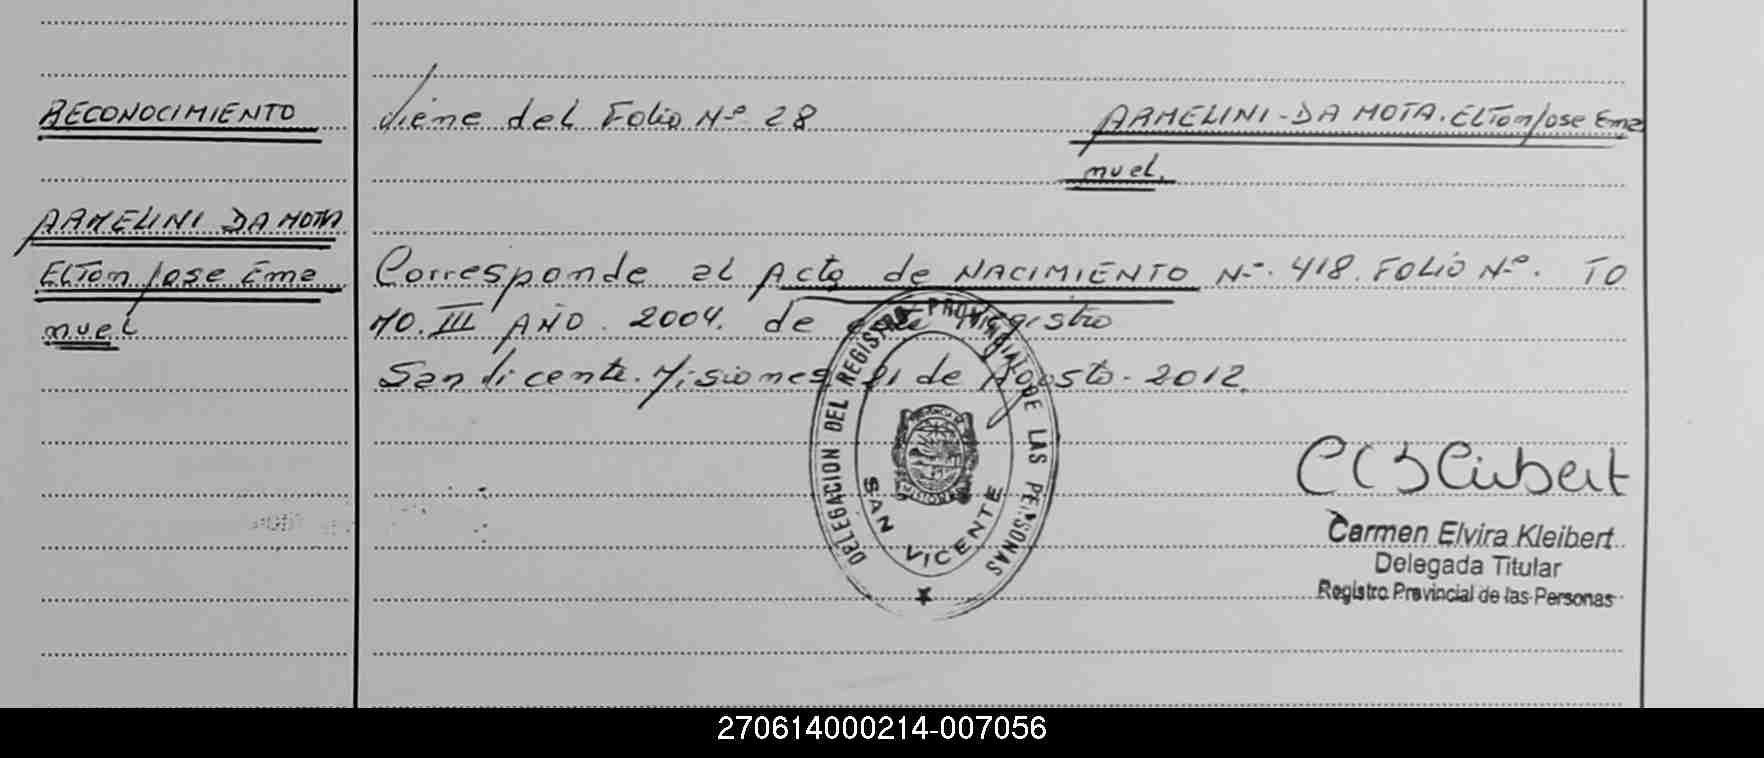 RECONOCIMIENTO
ARMELINI DA MOTA
Elton Jose Ema
nuel
Viene del Folio Nº 28
ARMELINI-DA MOTA. Elton Jose Ema
nuel.
Corresponde al Acta de NACIMIENTO Nº. 418. FOLIO Nº. TO
MO. III AÑO. 2004. de este Registro
San Vicente. Misiones 21 de Agosto. 2012.
DELEGACION DEL REGISTRO PROVINCIAL DE LAS PERSONAS
SAN VICENTE
Carmen Elvira Kleibert
Delegada Titular
Registro Provincial de las Personas
270614000214-007056